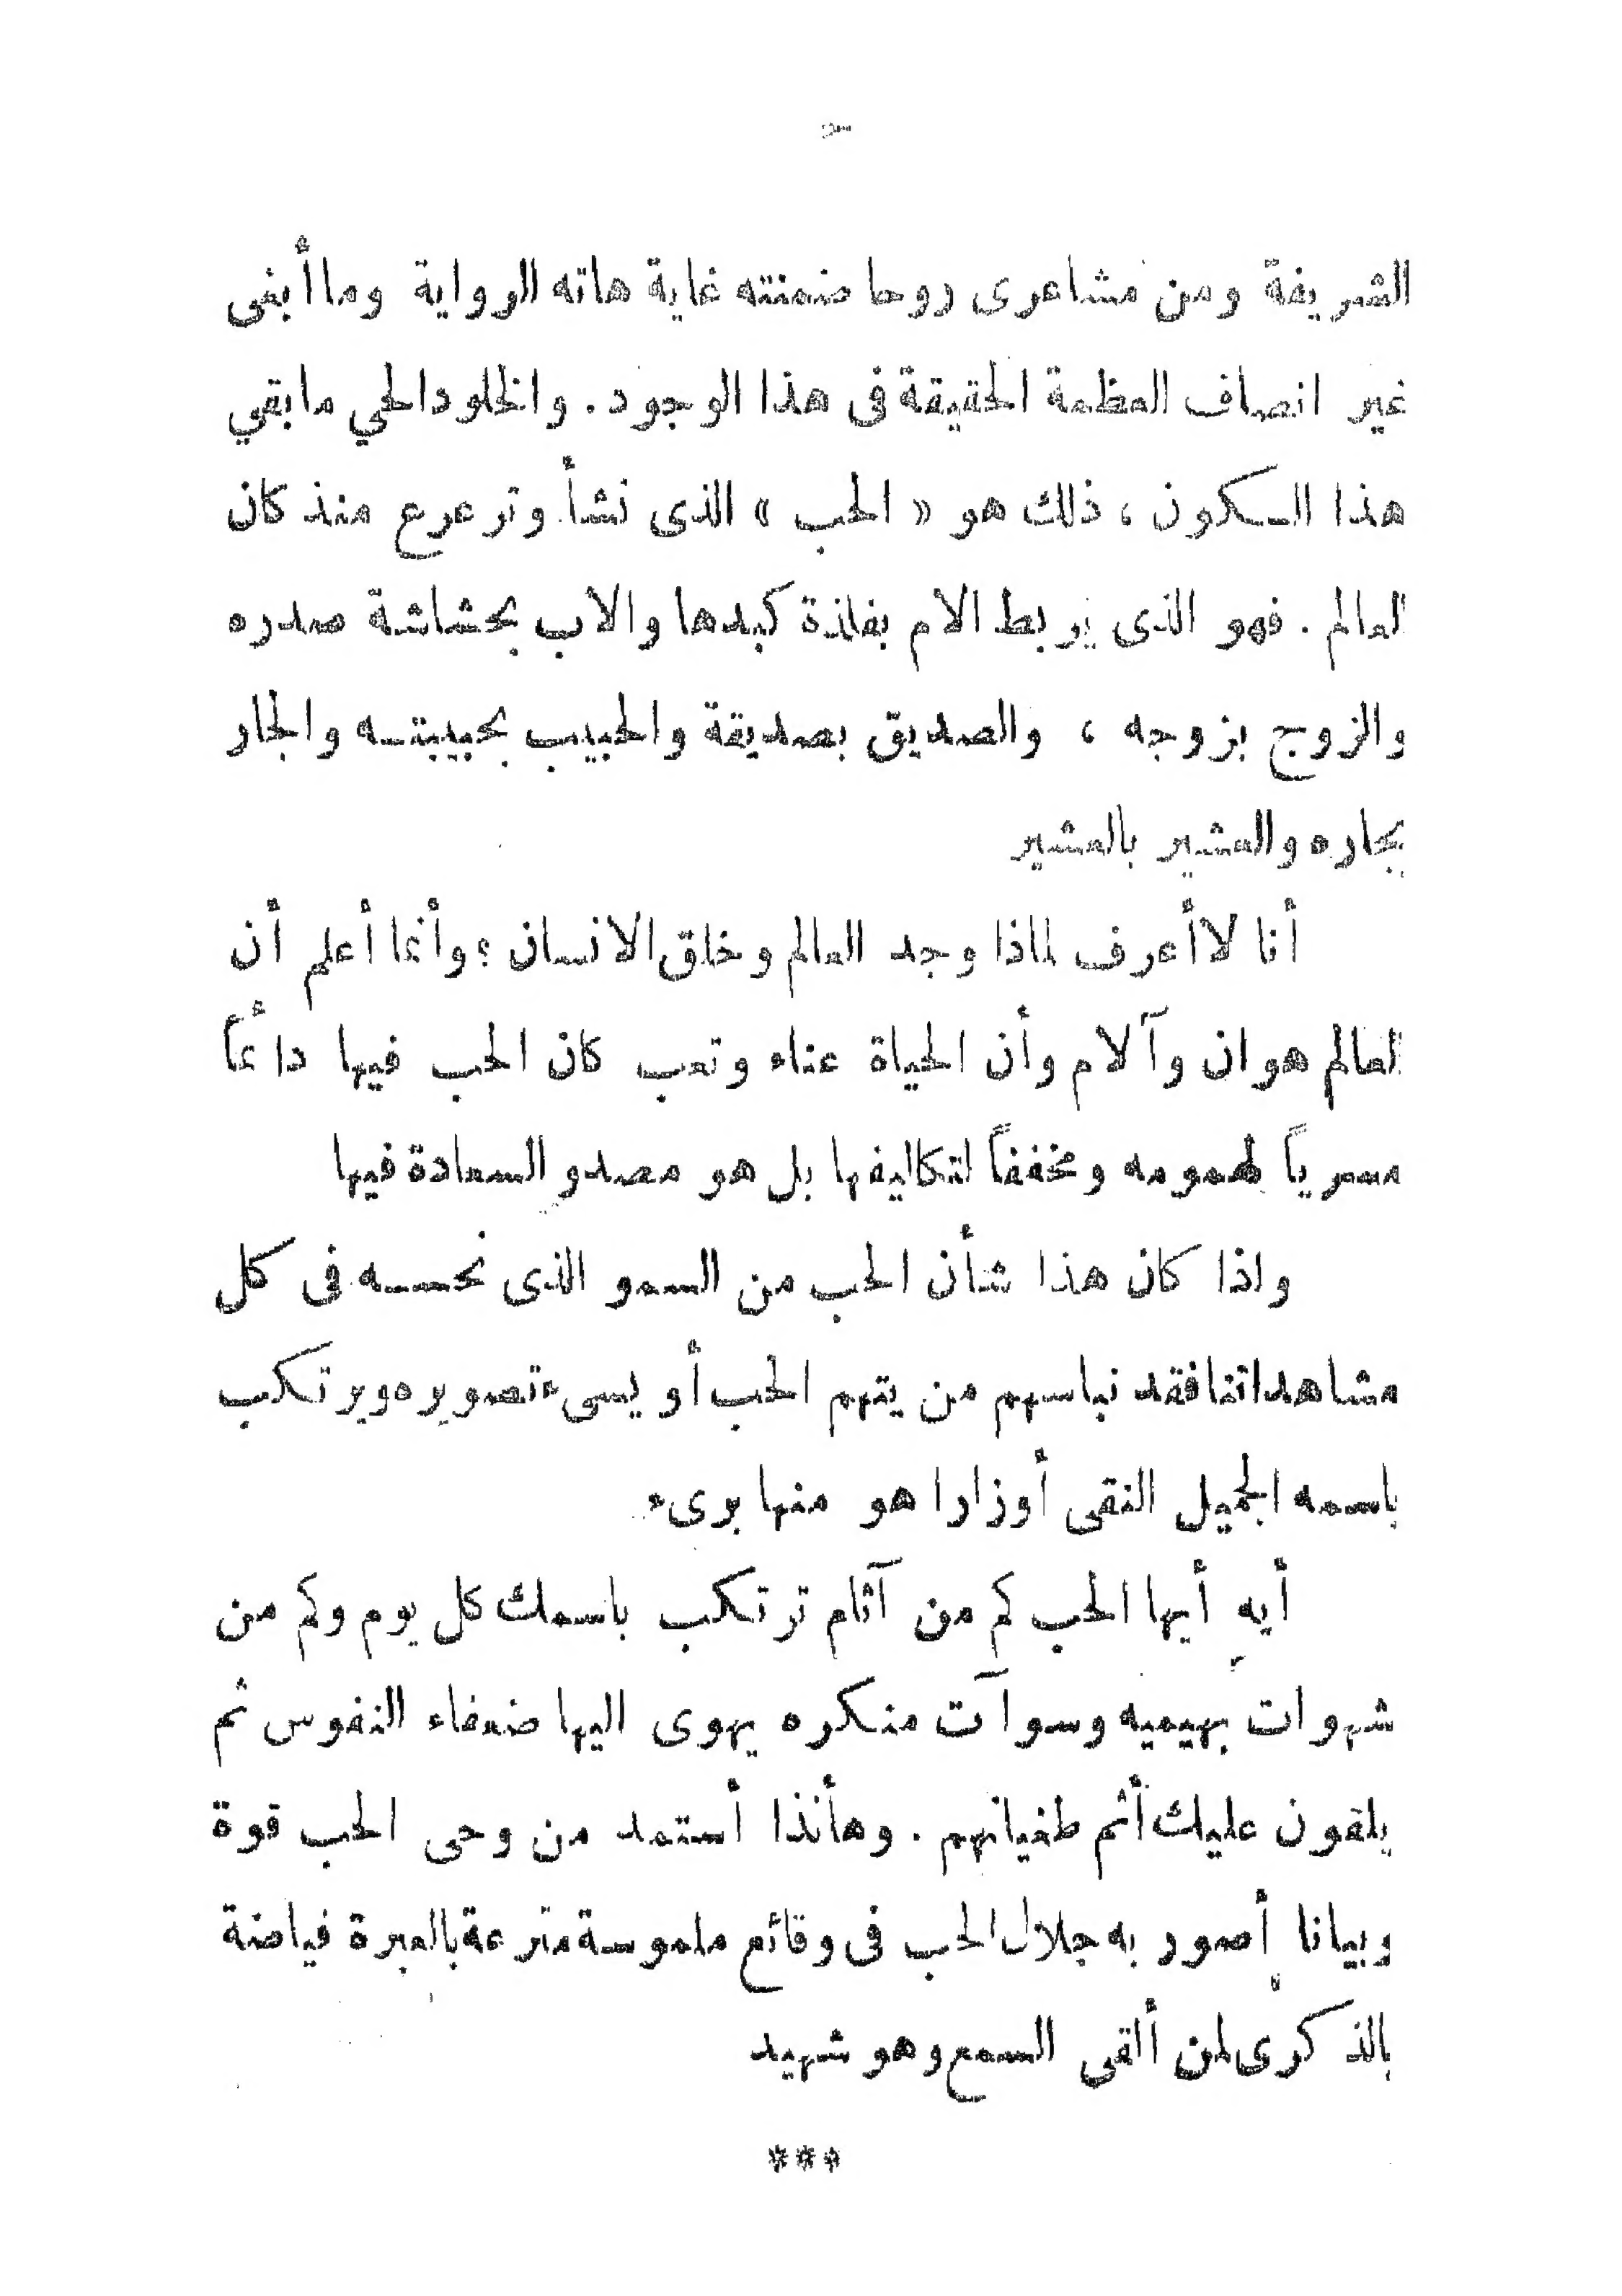 الشريفة ومن مشاعرى روحا ضمنته غاية هاته الرواية وما أبغى
غير انصاف العظمة الحقيقة فى هذا الوجود . والخلود الحي ما بقي
هذا السكون ، ذلك هو « الحب » الذى نشأ وترعرع منذ كان
العالم . فهو الذى يربط الام بفلذة كبدها والاب بحشاشة صدره
والزوج بزوجه ، والصديق بصديقة والحبيب بحبيبتـه والجار
بجاره والعشير بالعشير
أنا لا أعرف لماذا وجد العالم وخلق الانسان ؟ وأنما أعلم أن
العالم هوان وآلام وأن الحياة عناء وتعب كان الحب فيها دائماً
مسرياً لهمومه ومخففاً لتكاليفها بل هو مصدو السعادة فيها
واذا كان هذا شأن الحب من السمو الذى نحسـه فى كل
مشاهداتنا فقد نباسهم من يتهم الحب أو يسىء تصويره ويرتكب
باسمه الجميل النقى أوزارا هو منها برىء
أيهِ أيها الحب كم من آثام ترتكب باسمك كل يوم وكم من
شهوات بهيميه وسوآت منكره يهوى اليها ضعفاء النفوس ثم
يلقون عليك أثم طغيانهم . وهأنذا أستمد من وحى الحب قوة
وبيانا أصور به جلال الحب فى وقائع ملموسة مترعة بالعبرة فياضة
بالذكرى لمن ألقى السمع وهو شهيد
***